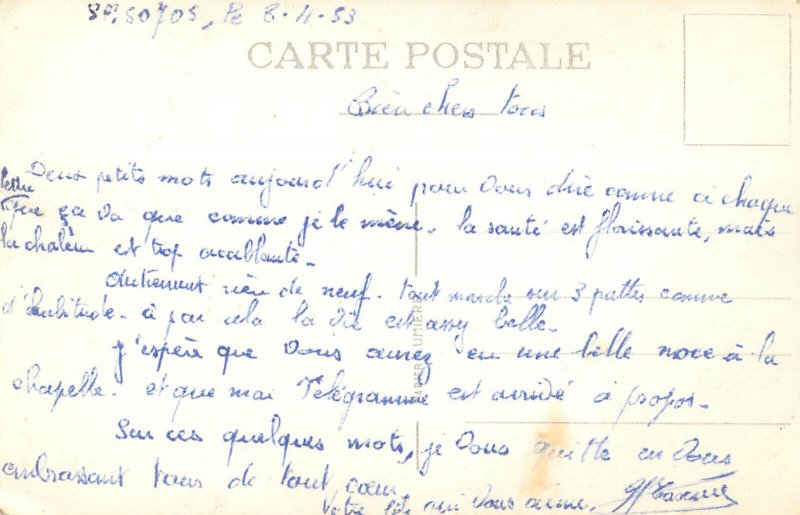 SP.50705, le 8-11-53
CARTE POSTALE
Bien chers tous
Deux petits mots aujourd'hui pour vous dire comme à chaque
lettre
que ça va que comme je le mène. la santé est florissante, mais
la chaleur est trop accablante.
Autrement rien de neuf. tout marche sur 3 pattes comme
d'habitude. à par cela la vie est assez belle.
J'espère que vous aurez eu une belle noce à la
chapelle. et que mai Télégramme est arrivé à propos.
Sur ces quelques mots, je vous quitte en vous
embrassant tous de tout cœur
Votre fils qui vous aime.
LUMIER